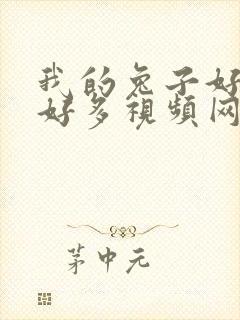 我的兔子好
好多視頻网
茅中元